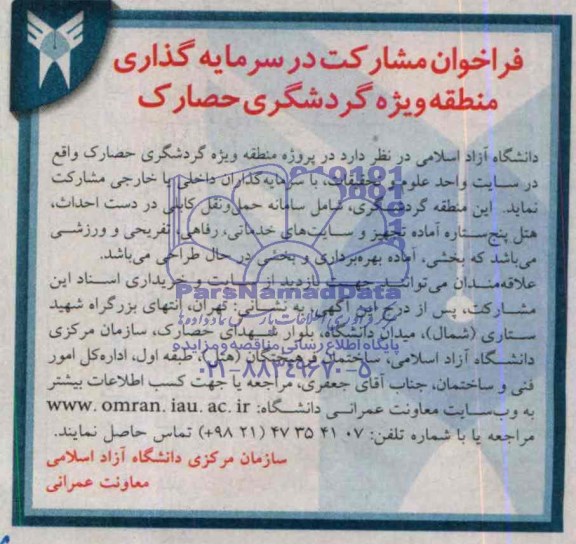 فراخوان مشارکت در سرمایه گذاری
منطقه ویژه گردشگری حصارک
دانشگاه آزاد اسلامی در نظر دارد در پروژه منطقه ویژه گردشگری حصارک واقع
در سایت واحد علوم و تحقیقات، با سرمایه‌گذاران داخلی یا خارجی مشارکت
نماید. این منطقه گردشگری، شامل سامانه حمل‌ونقل کابلی در دست احداث،
هتل پنج‌ستاره آماده تجهیز و سایت‌های خدماتی، رفاهی، تفریحی و ورزشی
می‌باشد که بخشی، آماده بهره‌برداری و بخشی در حال طراحی می‌باشد.
علاقه‌مندان می‌توانند جهت بازدید از سایت و خریداری اسناد این
مشارکت، پس از درج این آگهی، به نشانی: تهران، انتهای بزرگراه شهید
ستاری (شمال)، میدان دانشگاه، بلوار شهدای حصارک، سازمان مرکزی
دانشگاه آزاد اسلامی، ساختمان فرهیختگان (هتل)، طبقه اول، اداره‌کل امور
فنی و ساختمان، جناب آقای جعفری، مراجعه یا جهت کسب اطلاعات بیشتر
به وب‌سایت معاونت عمرانی دانشگاه: www.omran.iau.ac.ir
مراجعه یا با شماره تلفن: ۰۷ ۴۱ ۳۵ ۴۷ (۲۱ ۹۸+) تماس حاصل نمایند.
سازمان مرکزی دانشگاه آزاد اسلامی
معاونت عمرانی
ParsNamadData
پایگاه اطلاع رسانی مناقصه و مزایده
۰۲۱-۸۸۳۴۹۶۷۰-۵